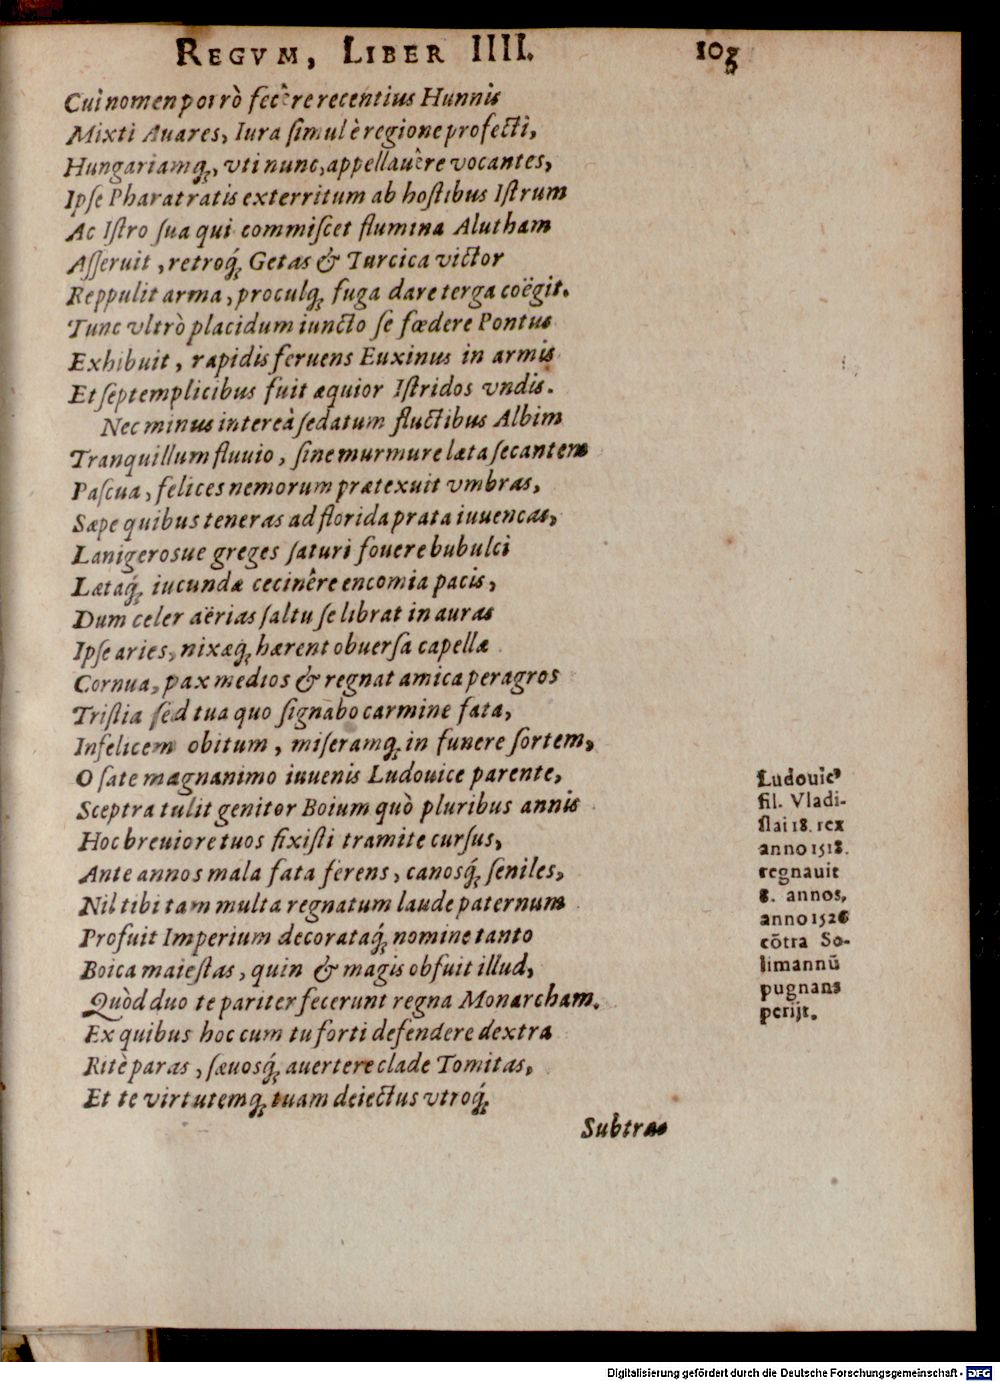 REGVM, LIBER IIII. 109
Cui nomen porrò fecêre recentius Hunnis
Mixti Auares, Iura ſimul è regione profecti,
Hungariamq́;, vti nunc, appellauêre vocantes,
Ipſe Pharatratis exterritum ab hoſtibus Iſtrum
Ac Iſtro ſua qui commiſcet flumina Alutham
Aſſeruit, retroq́; Getas & Turcica victor
Reppulit arma, proculq́; fuga dare terga coëgit.
Tunc vltrò placidum iuncto ſe fœdere Pontus
Exhibuit, rapidis feruens Euxinus in armis
Et ſeptemplicibus fuit æquior Iſtridos vndis.
Nec minus intereà ſedatum fluctibus Albim
Tranquillum fluuio, ſine murmure læta ſecantem
Paſcua, felices nemorum prætexuit vmbras,
Sæpe quibus teneras ad florida prata iuuencas,
Lanigerosue greges ſaturi fouere bubulci
Lætaq́; iucundæ cecinêre encomia pacis,
Dum celer aërias ſaltu ſe librat in auras
Ipſe aries, nixæq́; hærent obuerſa capellæ
Cornua, pax medios & regnat amica per agros
Triſtia ſed tua quo ſignabo carmine fata,
Infelicem obitum, miſeramq́; in funere ſortem,
O ſate magnanimo iuuenis Ludouice parente,
Sceptra tulit genitor Boium quò pluribus annis
Hoc breuiore tuos fixiſti tramite curſus,
Ante annos mala fata ferens, canosq́; ſeniles,
Nil tibi tam multa regnatum laude paternum
Profuit Imperium decorataq́; nomine tanto
Boica maieſtas, quin & magis obfuit illud,
Quòd duo te pariter fecerunt regna Monarcham.
Ex quibus hoc cum tu forti defendere dextra
Ritè paras, ſæuosq́; auertere clade Tomitas,
Et te virtutemq́; tuam deiectus vtroq́;
Subtra-
Ludouic⁹
fil. Vladi-
ſlai 18. rex
anno 1518.
regnauit
8. annos,
anno 1526
cōtra So-
limannū
pugnans
perijt.
Digitalisierung gefördert durch die Deutsche Forschungsgemeinschaft - DFG